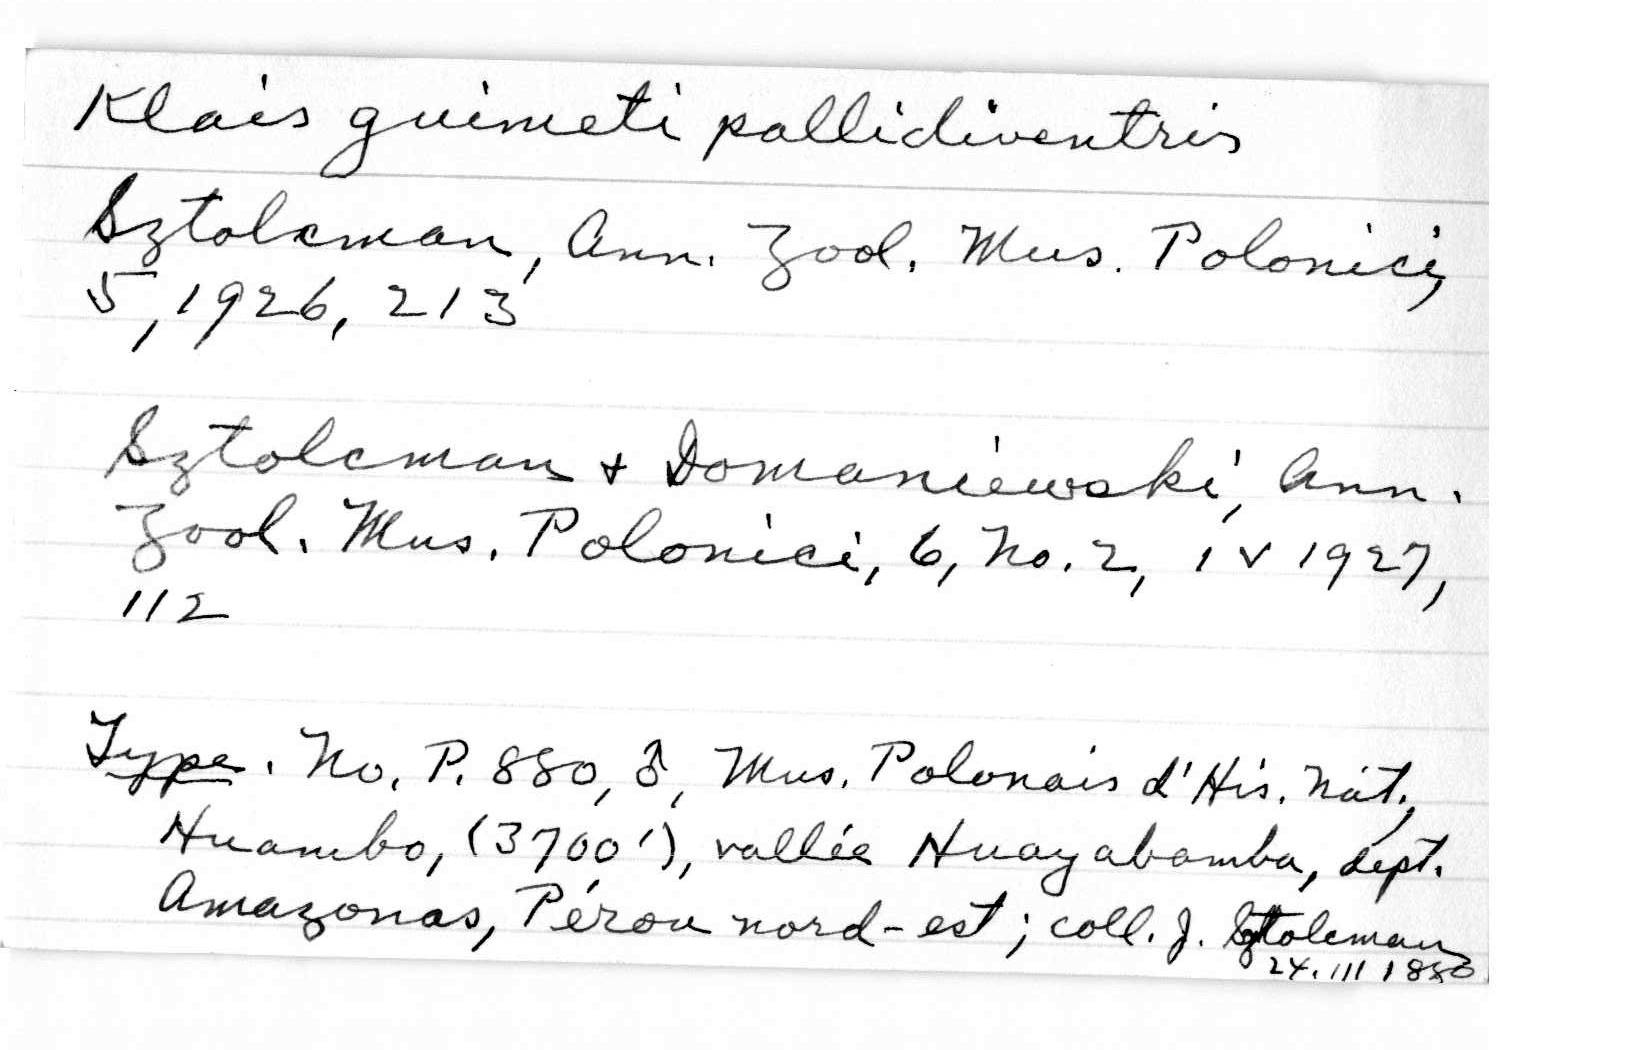 Klais guimeti pallidiventris
Sztolcman, Ann. Zool. Mus. Polonici,
5, 1926, 213
Sztolcman + Domaniewski, Ann.
Zool. Mus. Polonici, 6, No. 2, iv 1927,
112
Type. No. P. 880, ♂, Mus. Polonais d'His. Nat.,
Huambo, (3700'), vallée Huayabamba, dept.
Amazonas, Pérou nord-est; coll. J. Sztolcman
24.III 1880